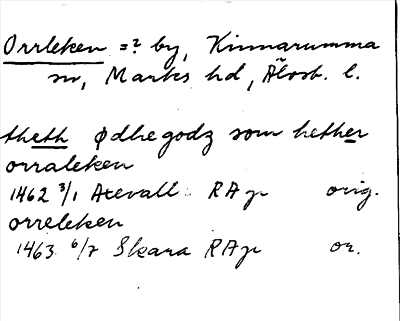 Orrleken =? by, Kinnarumma
sn, Marks hd, Älvsb. l.
theth ødhe godz som hether
orraleken
1462 3/1 Axevall RAp orig.
orreleken
1463 6/7 Skara RAp or.